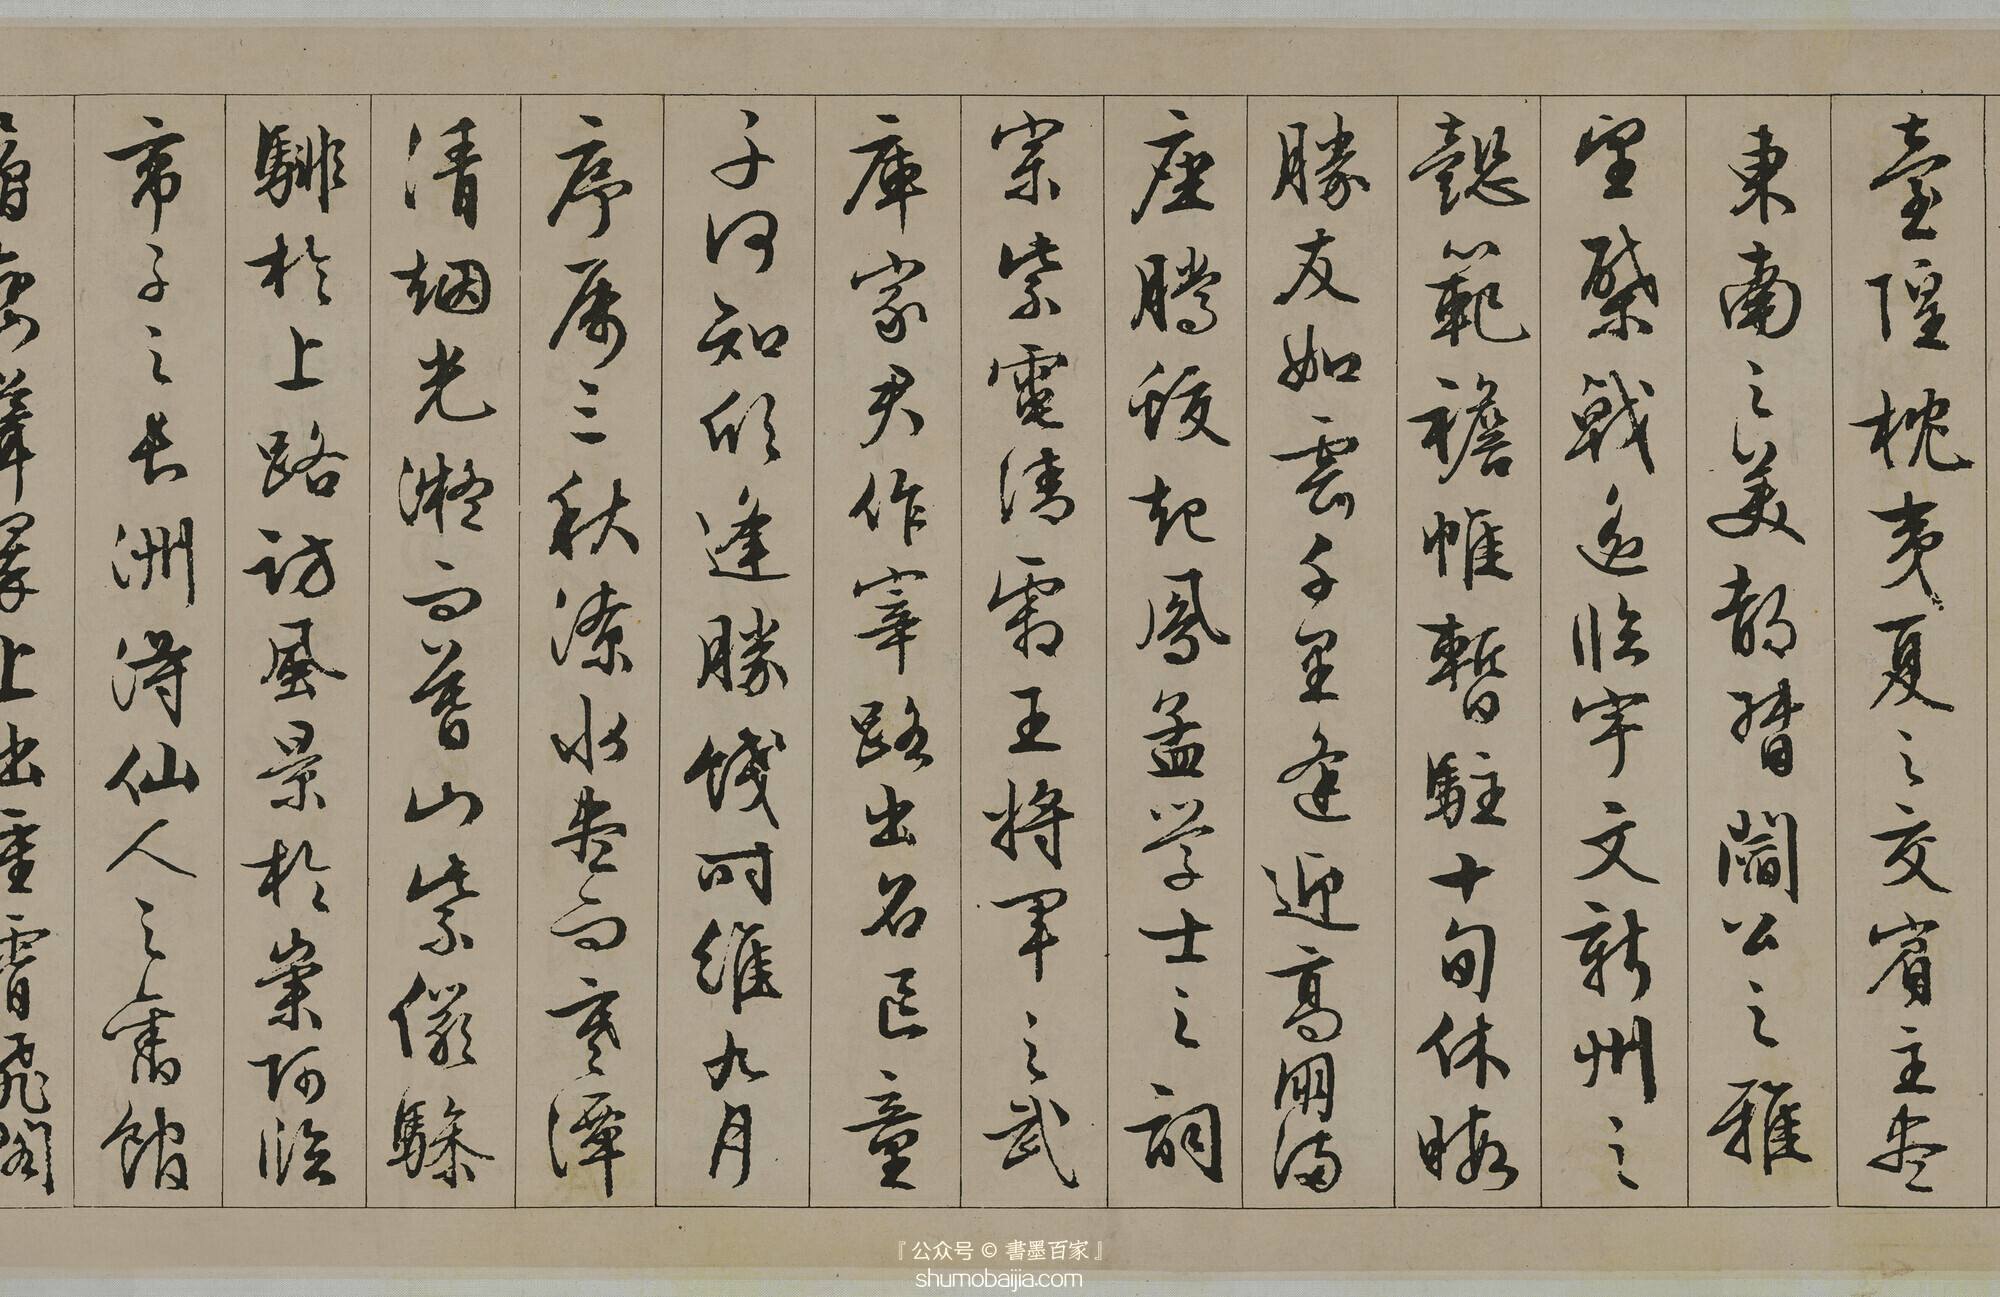 臺隍枕夷夏之交賓主盡
東南之美都督閻公之雅
望棨戟遙臨宇文新州之
懿範襜帷暫駐十旬休暇
勝友如雲千里逢迎高朋滿
座騰蛟起鳳孟學士之詞
宗紫電清霜王將軍之武
庫家君作宰路出名區童
子何知欣逢勝餞時維九月
序屬三秋潦水盡而寒潭
清烟光凝而暮山紫儼驂
騑於上路訪風景於崇阿臨
帝子之長洲得仙人之舊館
層巒聳翠上出重霄飛閣
『公众号 © 書墨百家』
shumobaijia.com